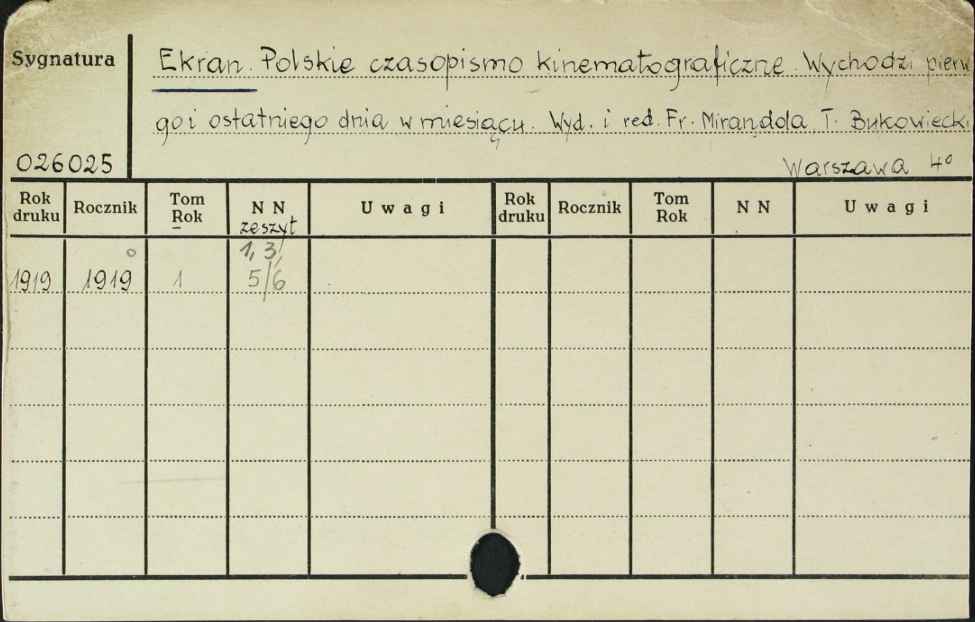 Sygnatura
Ekran. Polskie czasopismo kinematograficzne. Wychodzi pierw
go i ostatniego dnia w miesiącu. Wyd. i red. Fr. Mirandola, T. Bukowiecki
026025
Warszawa 4°
Rok druku Rocznik Tom Rok N N zeszyt Uwagi Rok druku Rocznik Tom Rok N N Uwagi
1, 3,
1919 1919 1 5/6